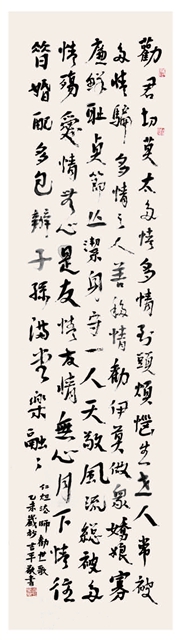 勸君切莫太多情多情到頭煩惱生世人常被
多情騙多情之人善移情勸伊莫做眾嬌娘寡
廉鮮恥貞節亡潔身守一人天敬風流總被多
情殤愛情無心是友情友情無心月下情往
昔婚配多包辦子孫滿堂樂融融
勸世歌
乙未歲
書